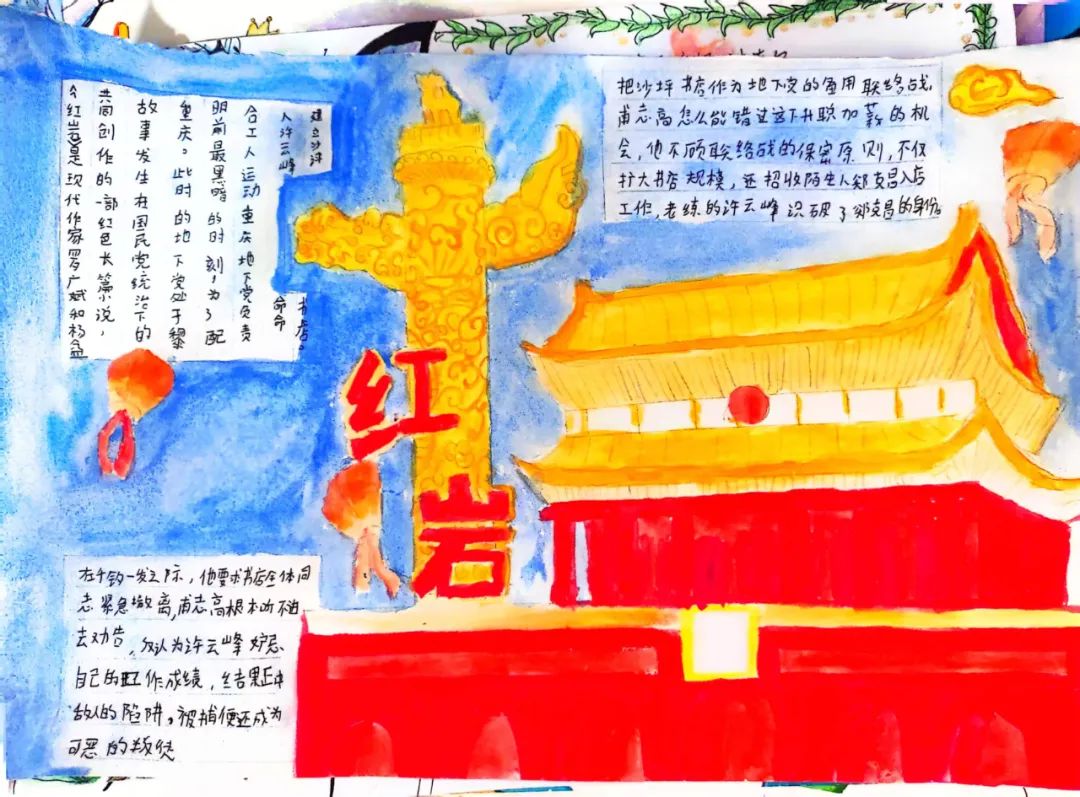 《红岩》是现代作家罗广斌和杨益
共同创作的一部红色长篇小说，
故事发生在国民党统治下的
重庆。此时的地下党处于黎
明前最黑暗的时刻，为了配
合工人运动重庆地下党负责
人许云峰命命
建立沙坪书店。
把沙坪书店作为地下党的备用联络战,
甫志高怎么能错过这个升职加薪的机
会，他不顾联络战的保密原则，不仅
扩大书店规模，还招收陌生人郑克昌入店
工作，老练的许云峰识破了郑克昌的身份。
红岩
在千钧一发之际，他要求书店全体同
志紧急撤离，甫志高根本听不进
去劝告，认为许云峰妒忌
自己的工作成绩，结果正中
敌人的陷阱。被捕便还成为
可恶的叛徒